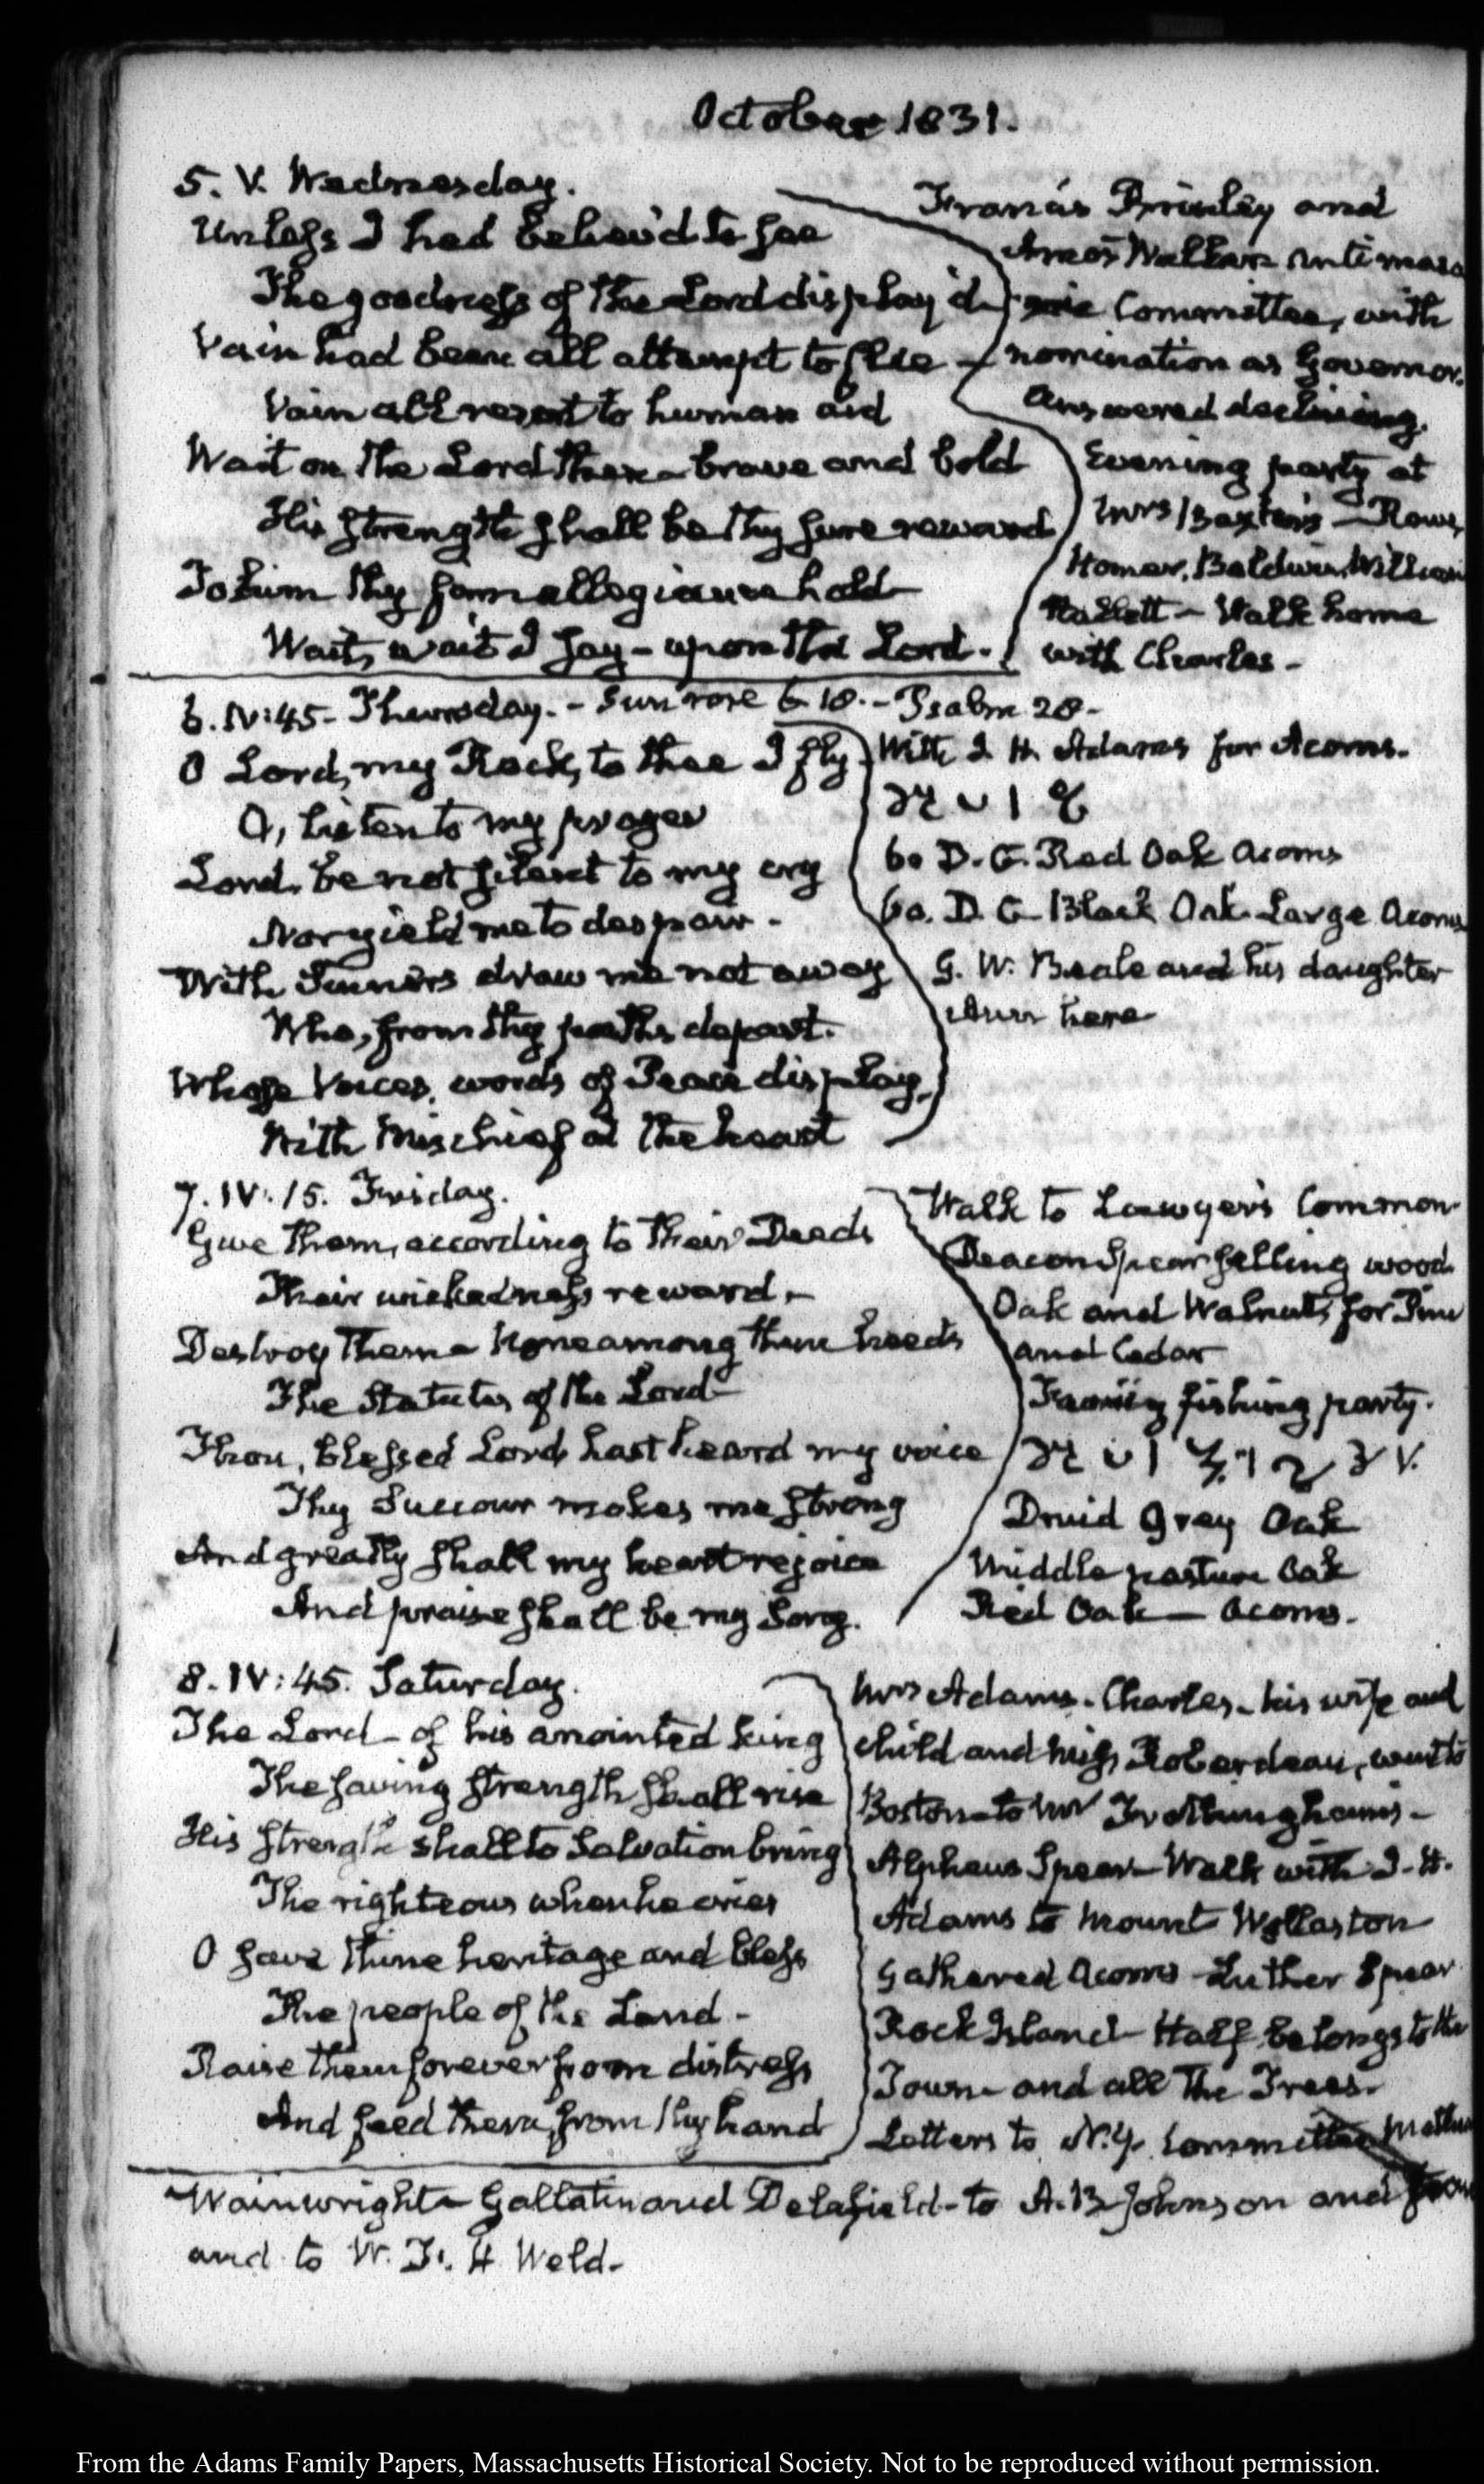 October 1831.
5. V. Wednesday.
Unless I had believ'd to see
The goodness of the Lord display'd
Vain had been all attempt to flee
Vain all resort to human aid
Wait on the Lord then - brave and bold
His strength shall be thy sure reward
To him thy firm allegiance hold
Wait, wait I say - upon the Lord.
and
Amos Walker Antimaso
nic Committee, with
nomination as Governor.
Answered declining.
Evening party at
Mrs Baxter's -
Homer, Baldwin, William
Hallett - Walk home
with Charles -
6. IV:45 - Thursday. - Sun rose 6 10. - Psalm 28 -
O Lord, my Rock, to thee I fly
O, listen to my prayer
Lord, be not silent to my cry
Nor yield me to despair -
With Sinners draw me not away
Who, from thy paths depart.
Whose Voices, words of Peace display,
With Mischief at the heart
With I. H. Adams for Acorns.
60 D. G. Red Oak acorns
60. D. G Black Oak. Large Acorns
G. W. Beale and his daughter
Ann here
7. IV:15. Friday.
Give them, according to their Deeds
Their wickedness reward, -
Destroy them - None among them heeds
The Statutes of the Lord -
Thou, blessed Lord, hast heard my voice
Thy Succour makes me strong
And greatly shall my heart rejoice
And praise shall be my Song.
Walk to Lawyer's Common
Deacon Spear felling wood
Oak and Walnut, for Pine
and Cedar
Family fishing party.
Druid Grey Oak
Middle pasture Oak
Red Oak - acorns.
8. IV:45. Saturday.
The Lord - of his anointed king
The saving strength shall rise
His strength shall to Salvation bring
The righteous when he cries
O save thine heritage and bless
The people of the Land -
Raise them forever from distress
And feed them, from thy hand
Mrs Adams - Charles - his wife and
child and Miss Roberdeau, went to
Boston - to Mr Frothingham's -
Alpheus Spear - Walk with I. H.
Adams to Mount Wollaston
Gathered Acorns - Luther Spear
Rock Island - Half belongs to the
Town - and all the Trees.
Letters to N.Y. Committee
Wainwright - Gallatin and Delafield - to A. B Johnson and
and to W. F. H Weld -
From the Adams Family Papers, Massachusetts Historical Society. Not to be reproduced without permission.